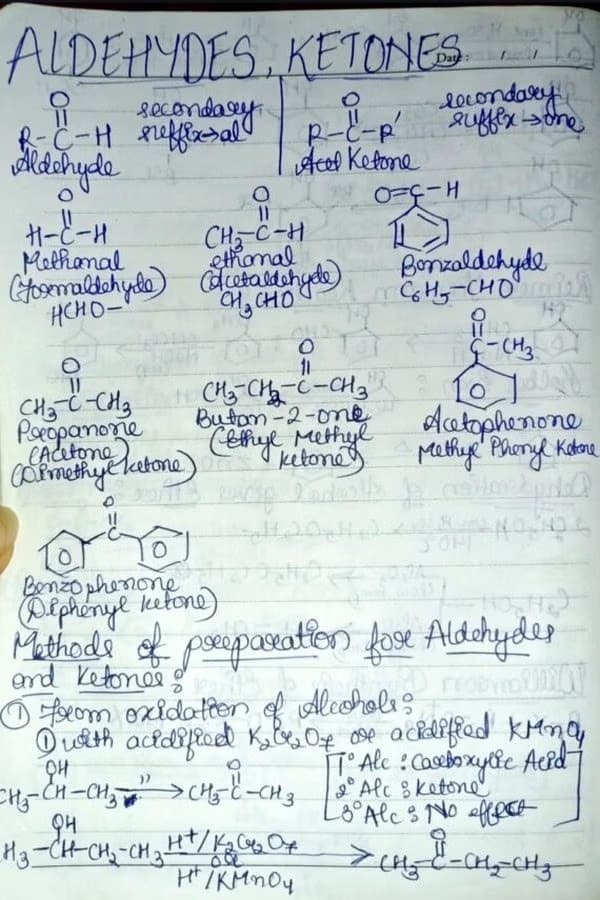 ALDEHYDES, KETONES
Date: / /
O
R-C-H
Aldehyde
secondary
suffix→al
O
R-C-R'
Ketone
secondary
suffix→one
O
H-C-H
Methanal
(Formaldehyde)
HCHO-
O
CH3-C-H
ethanal
(Acetaldehyde)
CH3CHO
O=C-H
Benzaldehyde
C6H5-CHO
O
CH3-C-CH3
Propanone
(Acetone)
(Dimethyl ketone)
O
CH3-CH2-C-CH3
Butan-2-one
(Ethyl Methyl
ketone)
O
C-CH3
Acetophenone
Methyl Phenyl Ketone
O
C
Benzophenone
(Diphenyl ketone)
Methods of preparation for Aldehydes
and Ketones:
① From oxidation of Alcohols:
① with acidified K2Cr2O7 or acidified KMnO4
1° Alc : Carboxylic Acid
2° Alc : Ketone
3° Alc : No effect
OH
CH3-CH-CH3 " → CH3-C-CH3
O
OH
H3-CH-CH2-CH3 H+/K2Cr2O7
or
H+/KMnO4
→ CH3-C-CH2-CH3
O